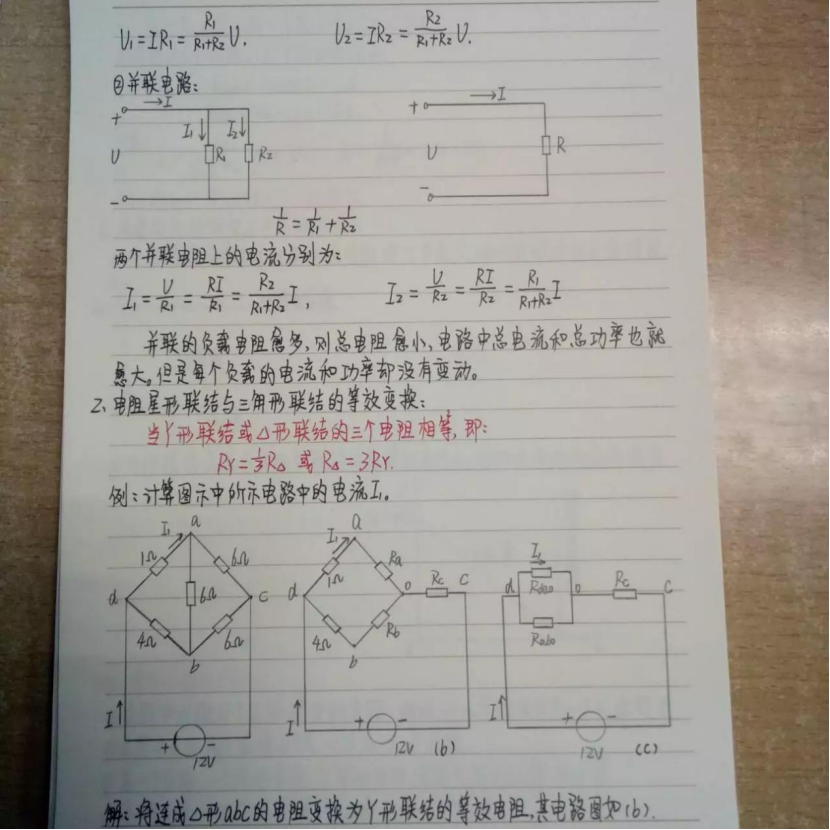 U₁=IR₁=R₁/(R₁+R₂) U.  U₂=IR₂=R₂/(R₁+R₂) U.
②并联电路:
→I  →I
+ I₁↓ I₂↓ +
U R₁ R₂ U R
- -
1/R=1/R₁+1/R₂
两个并联电阻上的电流分别为:
I₁=U/R₁=RI/R₁=R₂/(R₁+R₂) I,  I₂=U/R₂=RI/R₂=R₁/(R₁+R₂) I
并联的负载电阻愈多,则总电阻愈小,电路中总电流和总功率也就
愈大。但是每个负载的电流和功率却没有变动。
2、电阻星形联结与三角形联结的等效变换:
当Y形联结或△形联结的三个电阻相等,即:
RY=1/3 R△ 或 R△=3RY.
例:计算图示中所示电路中的电流I₁。
a I₁ 1Ω 6Ω d 6Ω c 4Ω 6Ω b I↑ + - 12V
a I₁ 1Ω Ra d o Rc C 4Ω Rb b I↑ + - 12V (b)
I₁ d Rdao o Rc C Rdbo I↑ + - 12V (C)
解:将连成△形abc的电阻变换为Y形联结的等效电阻,其电路图如(b).